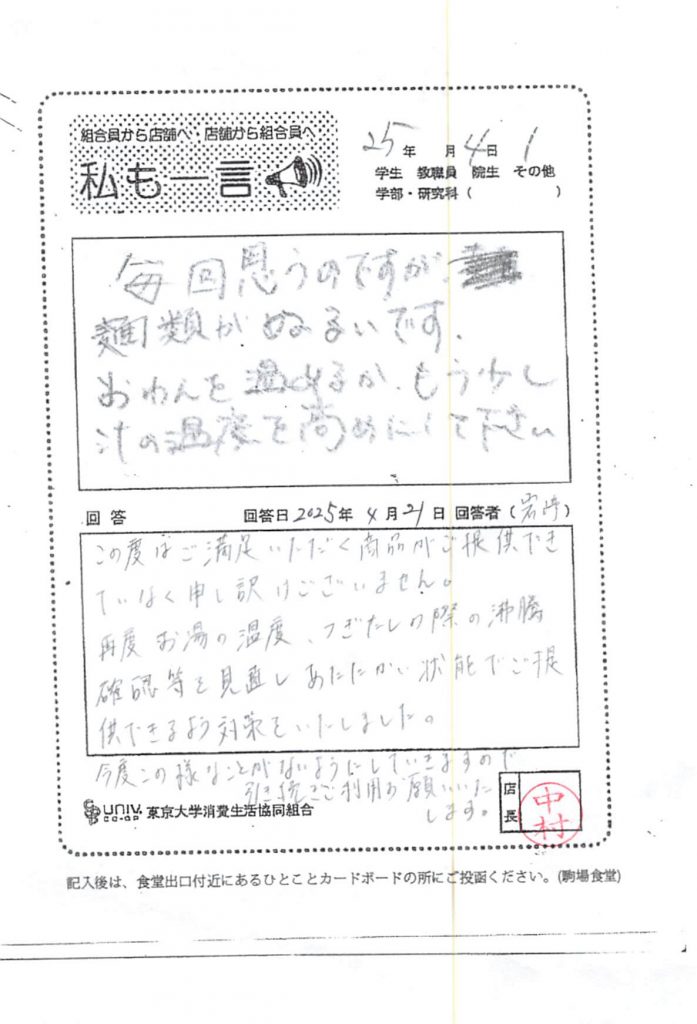 組合員から店舗へ・店舗から組合員へ
私も一言
25年 月4日 1
学生 教職員 院生 その他
学部・研究科( )
毎回思うのですが
麺類がぬるいです.
おわんを温めるか、もう少し
汁の温度を高めにして下さい
回答 回答日2025年4月21日 回答者(岩崎)
この度はご満足いただく商品がご提供でき
ていなく申し訳けございません。
再度お湯の温度、つぎたしの際の沸騰
確認等を見直しあたたかい状態でご提
供できるよう対策をいたしました。
今度この様なことがないようにしていきますので
引き続きご利用お願いいた
します。
UNIV. CO-OP 東京大学消費生活協同組合
店長
中村
記入後は、食堂出口付近にあるひとことカードボードの所にご投函ください。(駒場食堂)